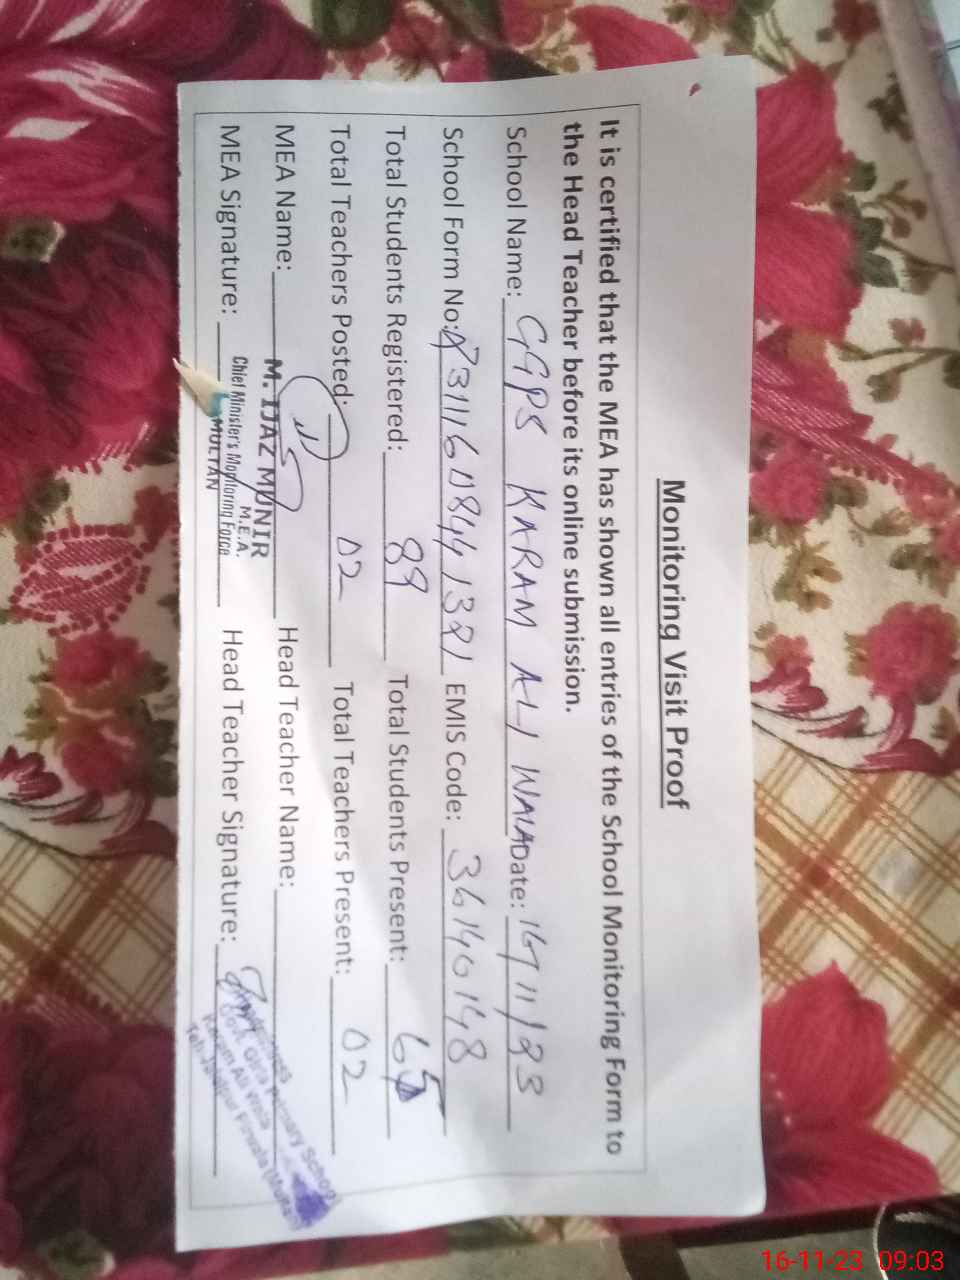 Monitoring Visit Proof
It is certified that the MEA has shown all entries of the School Monitoring Form to
the Head Teacher before its online submission.
School Name: GGPS KARAM ALI WALA Date: 16/11/23
School Form No: EMIS Code: 36140148
Total Students Registered: 89 Total Students Present: 65
Total Teachers Posted: 02 Total Teachers Present: 02
MEA Name: M. IJAZ MUNIR Head Teacher Name:
M.E.A.
MEA Signature: Chief Minister's Monitoring Force Head Teacher Signature:
MULTAN
Headmistress
Govt. Girls Primary School
Karam Ali Wala
16-11-23 09:03